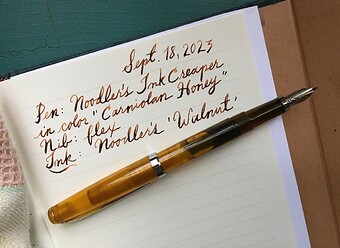 Sept. 18, 2023
Pen: Noodler's Ink Creaper
in color "Carniolan Honey"
Nib: flex
Ink: Noodler's 'Walnut'